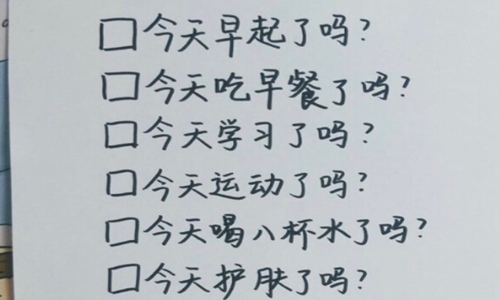 □今天早起了吗?
□今天吃早餐了吗?
□今天学习了吗?
□今天运动了吗?
□今天喝八杯水了吗?
□今天护肤了吗?